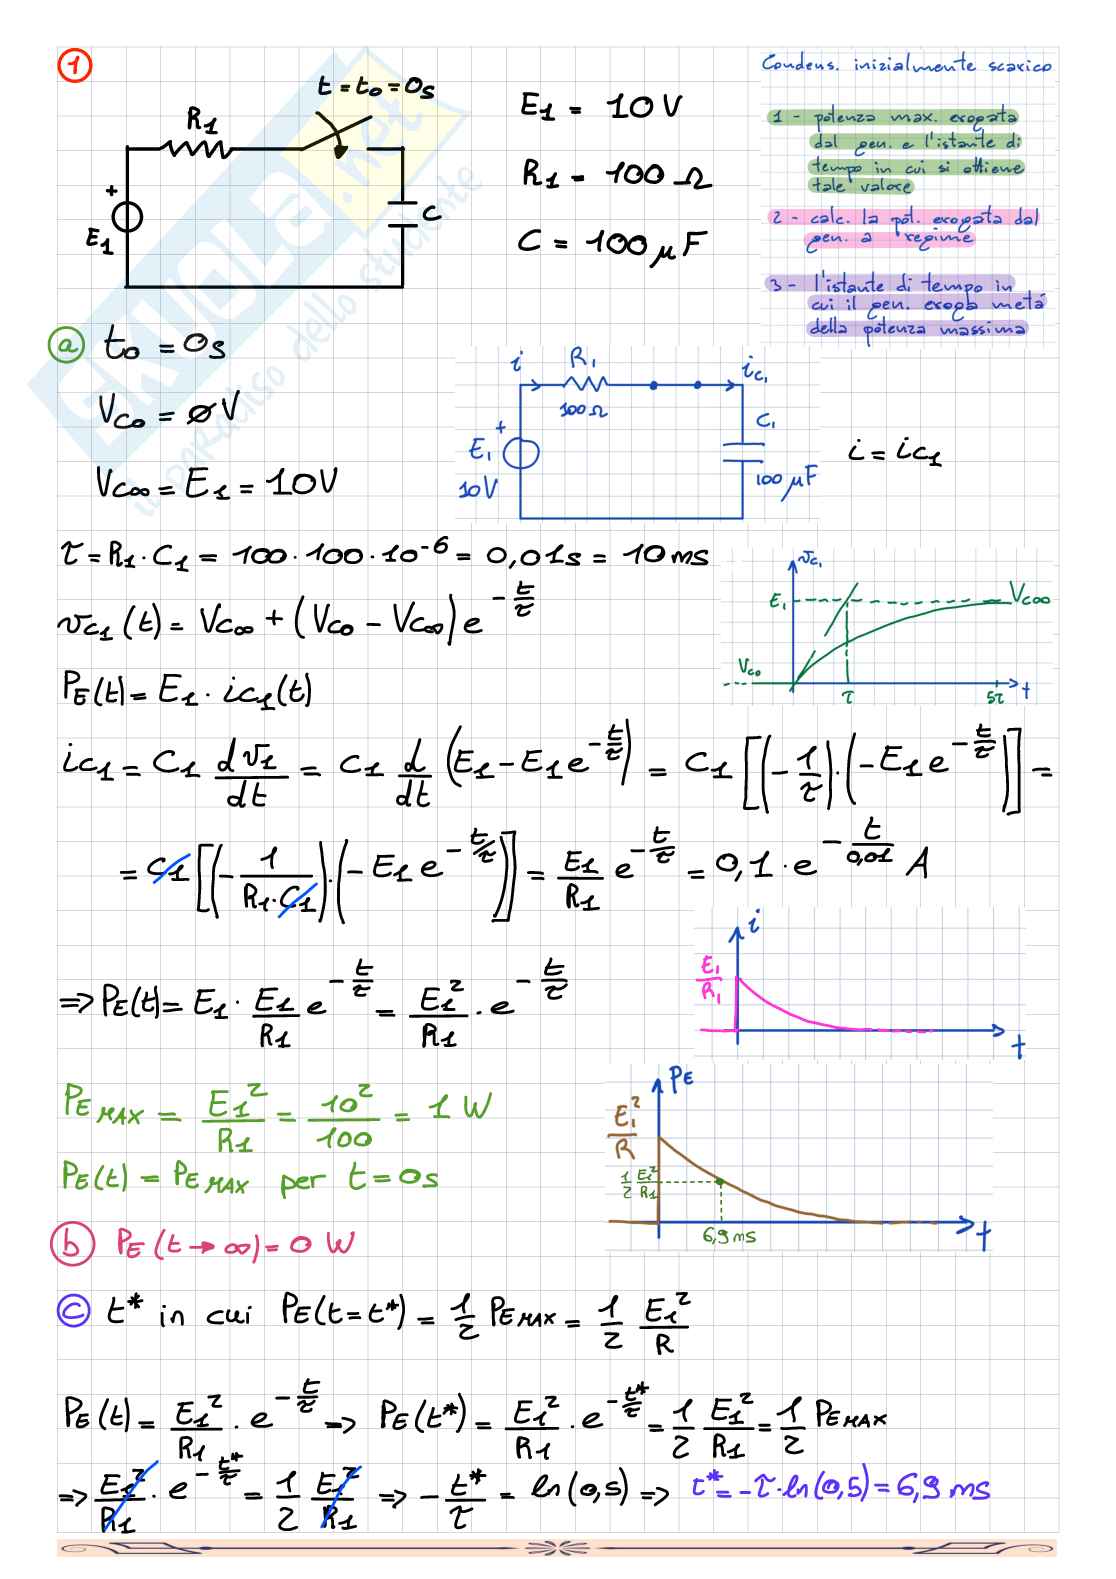 1
t = t0 = 0s
R1
+
E1
C
E1 = 10 V
R1 = 100 Ω
C = 100 μF
Condens. inizialmente scarico
1 - potenza max. erogata
dal gen. e l'istante di
tempo in cui si ottiene
tale valore
2 - calc. la pot. erogata dal
gen. a regime
3 - l'istante di tempo in
cui il gen. eroga metà
della potenza massima
SKUOLA.net
il paradiso dello studente
a t0 = 0s
VC0 = ∅ V
VC∞ = E1 = 10V
i R1 iC1
100Ω
+ C1
E1
10V 100 μF
i = iC1
τ = R1 · C1 = 100 · 100 · 10^-6 = 0,01s = 10 ms
vC1(t) = VC∞ + (VC0 - VC∞) e^(-t/τ)
vC1
E1 VC∞
VC0
τ 5τ t
PE(t) = E1 · iC1(t)
iC1 = C1 dv1/dt = C1 d/dt (E1 - E1 e^(-t/τ)) = C1 [(-1/τ) · (-E1 e^(-t/τ))] =
= C1 [(-1/(R1·C1)) · (-E1 e^(-t/τ))] = E1/R1 e^(-t/τ) = 0,1 · e^(-t/0,01) A
i
E1/R1
t
=> PE(t) = E1 · E1/R1 e^(-t/τ) = E1²/R1 · e^(-t/τ)
PE MAX = E1²/R1 = 10²/100 = 1 W
PE(t) = PE MAX per t = 0s
PE
E1²/R
1/2 E1²/R1
6,9 ms
t
b PE (t → ∞) = 0 W
c t* in cui PE(t = t*) = 1/2 PE MAX = 1/2 E1²/R
PE(t) = E1²/R1 · e^(-t/τ) => PE(t*) = E1²/R1 · e^(-t*/τ) = 1/2 E1²/R1 = 1/2 PE MAX
=> E1²/R1 · e^(-t*/τ) = 1/2 E1²/R1 => -t*/τ = ln(0,5) => t* = -τ · ln(0,5) = 6,9 ms